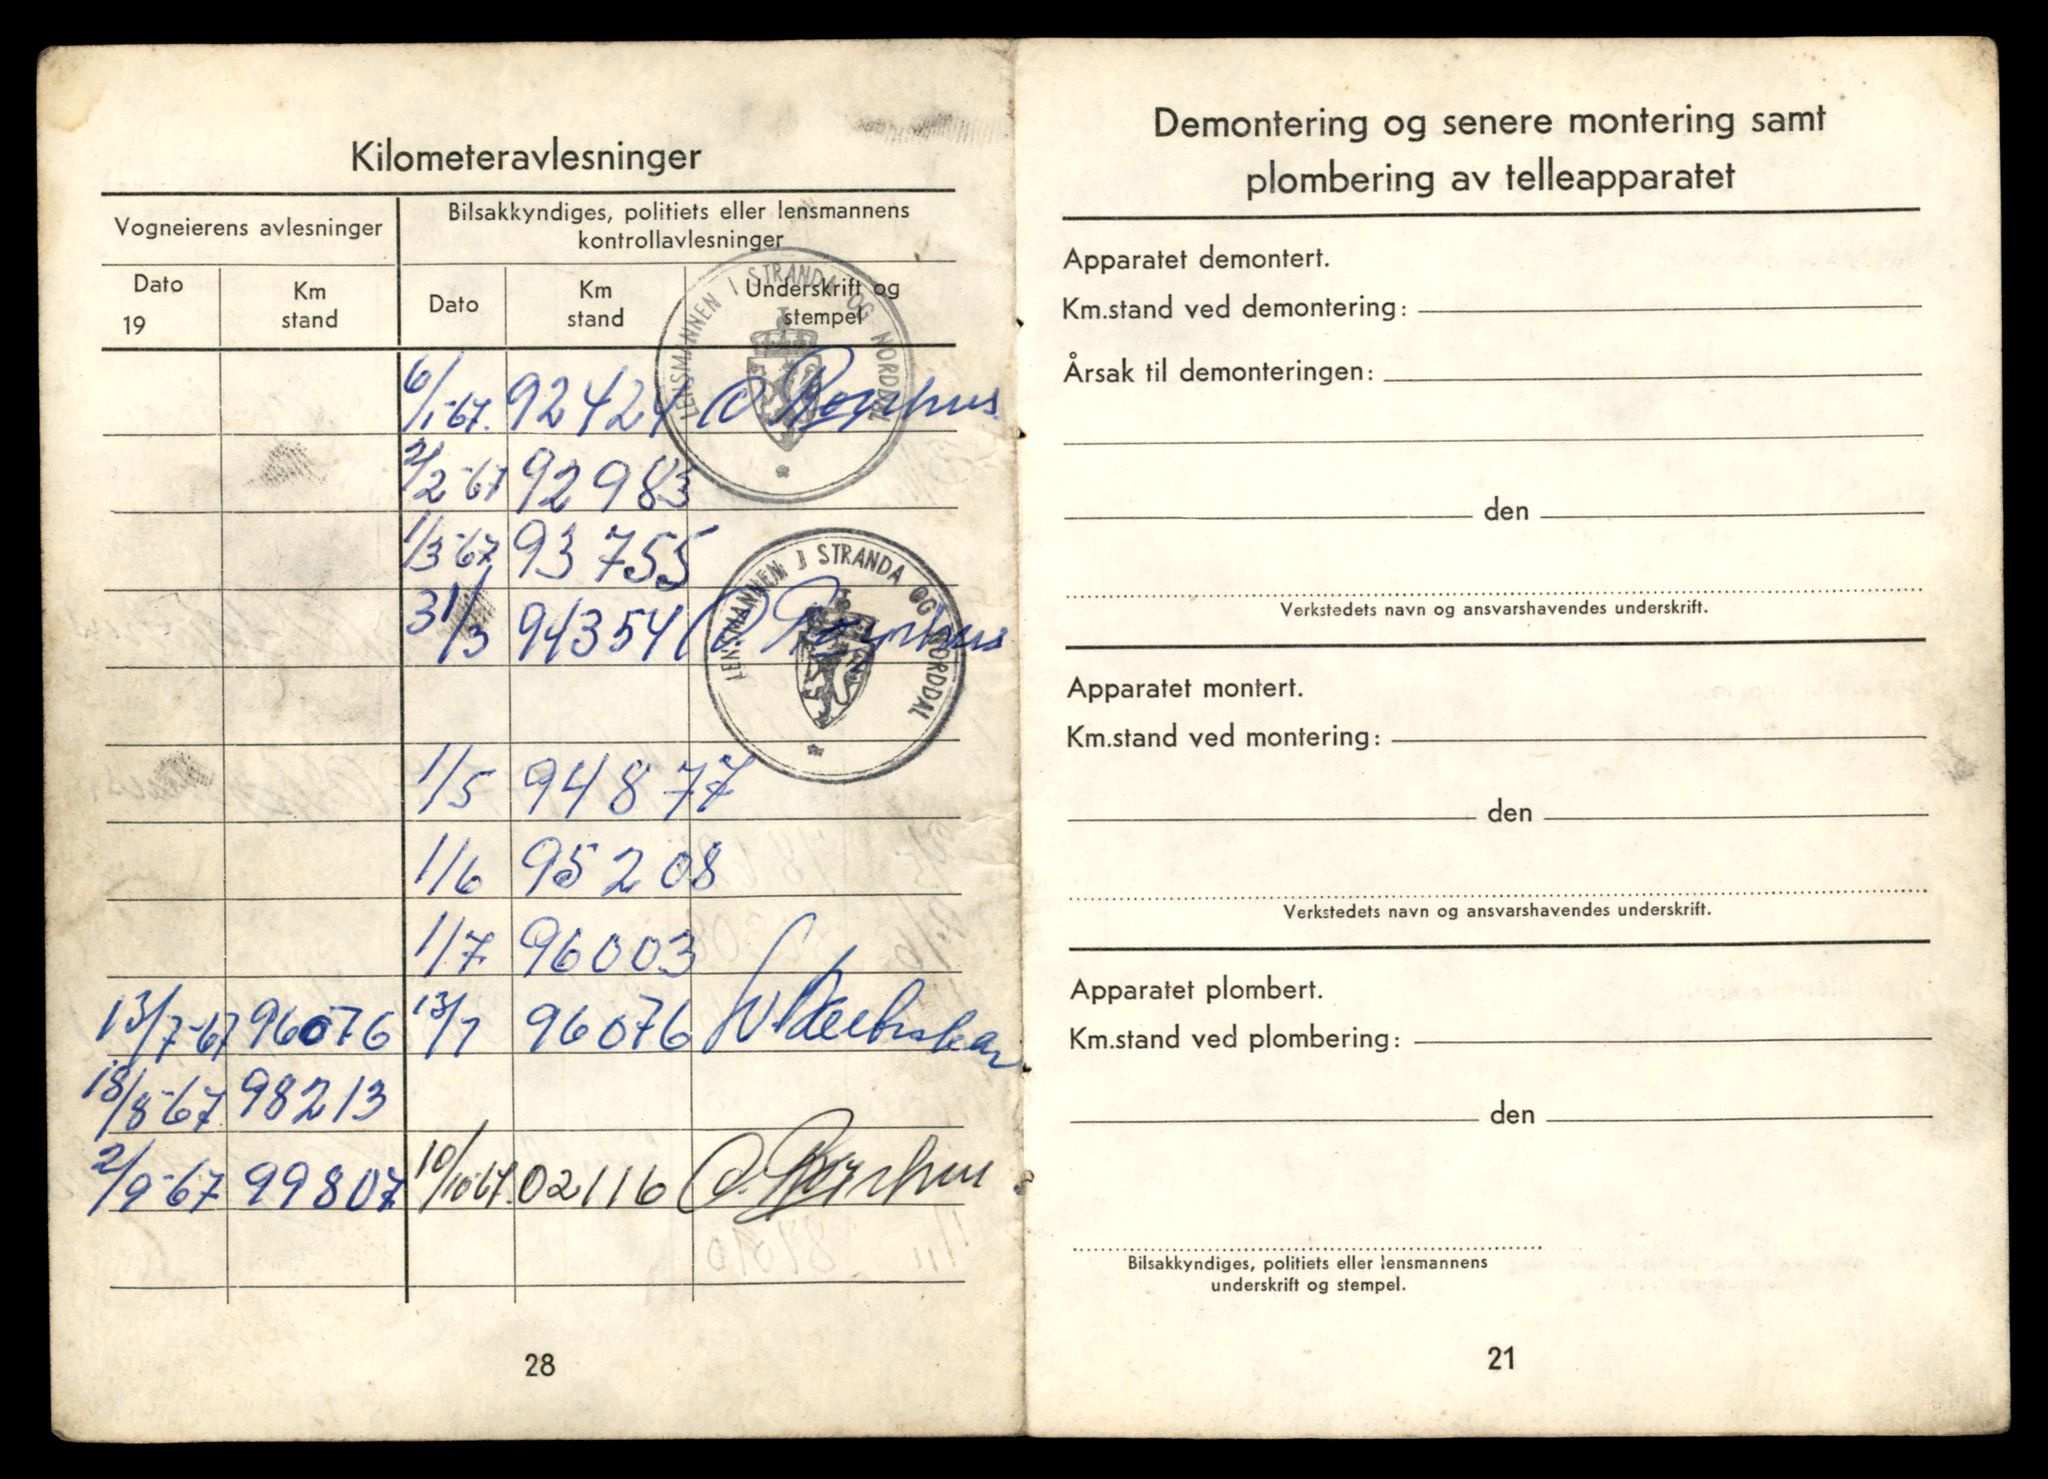 Kilometeravlesninger
Vogneierens avlesninger
Bilsakkyndiges, politiets eller lensmannens
kontrollavlesninger
Dato
19
Km
stand
Dato
Km
stand
Underskrift og
stempel
LENSMANNEN I STRANDA OG NORDDAL
6/1-67. 92424
2/2-67 92983
1/3-67. 93755
LENSMANNEN I STRANDA OG NORDDAL
31/3 94354
1/5 94877
1/6 95208
1/7 96003
13/7-67 96076 13/7 96076
18/8-67 98213
2/9-67 99807 10/10-67. 02116
28
Demontering og senere montering samt
plombering av telleapparatet
Apparatet demontert.
Km.stand ved demontering:
Årsak til demonteringen:
den
Verkstedets navn og ansvarshavendes underskrift.
Apparatet montert.
Km.stand ved montering:
den
Verkstedets navn og ansvarshavendes underskrift.
Apparatet plombert.
Km.stand ved plombering:
den
Bilsakkyndiges, politiets eller lensmannens
underskrift og stempel.
21